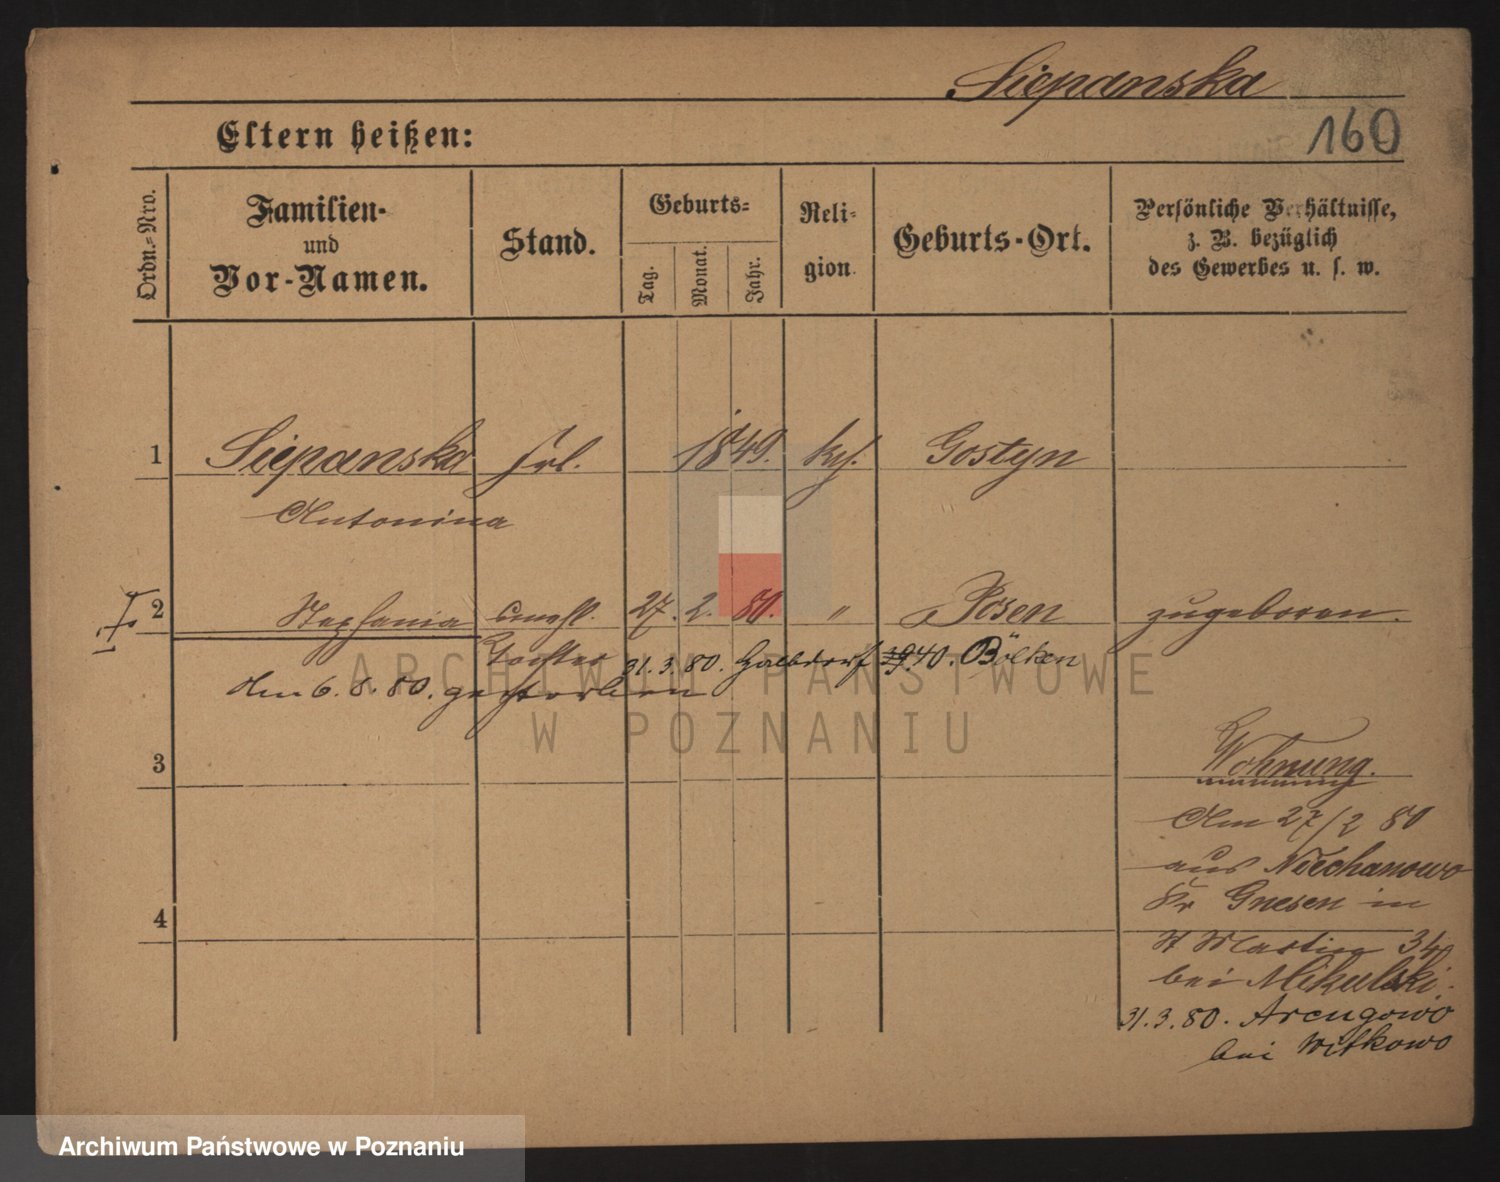 Siepanska
160
Eltern heißen:
Ordn.-Nro.
Familien-
und
Vor-Namen.
Stand.
Geburts-
Tag.
Monat.
Jahr.
Reli-
gion
Geburts-Ort.
Persönliche Verhältnisse,
z. B. bezüglich
des Gewerbes u. s. w.
1 Siepanska frl. 1849. kth. Gostyn
Antonina
2 Stephania unehl. 27. 2. 80. " Posen zugeboren.
Tochter 31. 3. 80. Halbdorf 40. Bölken
Am 6. 8. 80. gestorben
3
4
Wohnung.
Am 27/2 80
aus Niechanowo
Kr Gnesen in
St Martin 34
bei Mikulski.
31. 3. 80. Arcugowo
bei Witkowo
ARCHIWUM PAŃSTWOWE
W POZNANIU
Archiwum Państwowe w Poznaniu